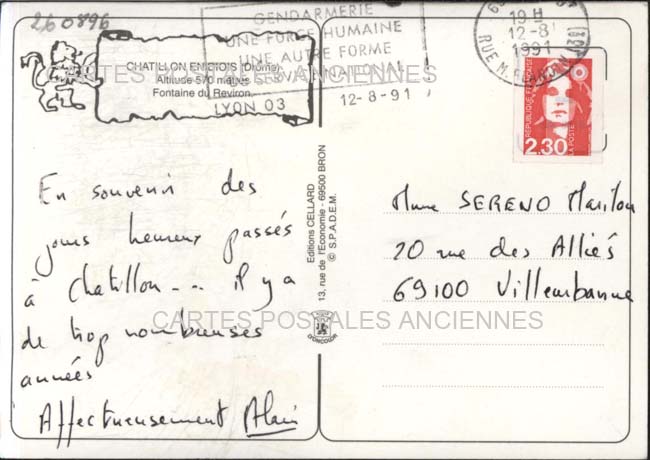 260896
CHATILLON EN DIOIS (Drôme)
Altitude 570 mètres
Fontaine du Reviron
GENDARMERIE
UNE FORCE HUMAINE
UNE AUTRE FORME
NATIONAL
LYON 03
12-8-91
19 H
12-8
1991
RUE M.
RÉPUBLIQUE FRANÇAISE
LA POSTE
2,30
CARTES POSTALES ANCIENNES
En souvenir des
jours heureux passés
à Chatillon... il y a
de trop nombreuses
années
Affectueusement Alain
Editions CELLARD
13, rue de l'Economie - 69500 BRON
© S.P.A.D.E.M.
Mme SERENO Marilou
20 rue des Alliés
69100 Villeurbanne
CARTES POSTALES ANCIENNES